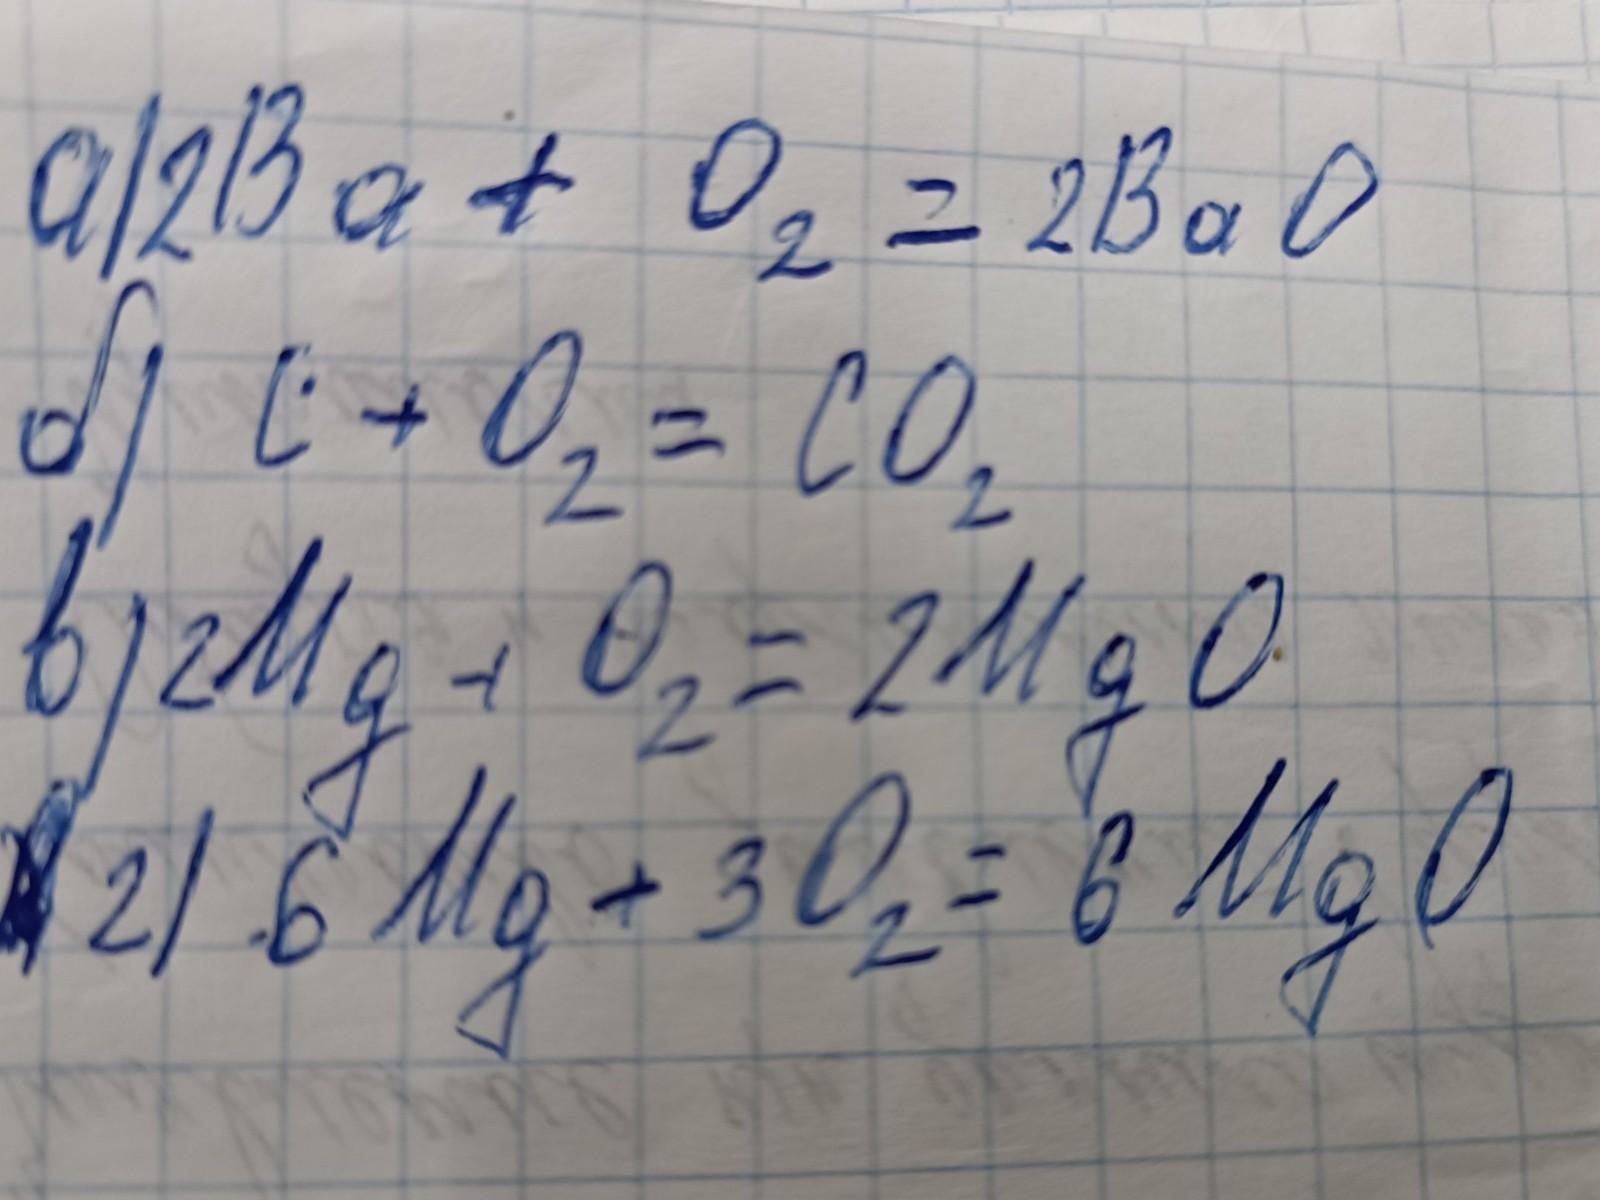 а) 2Ba + O₂ = 2BaO
б) C + O₂ = CO₂
в) 2Mg + O₂ = 2MgO
г) 6Mg + 3O₂ = 6MgO